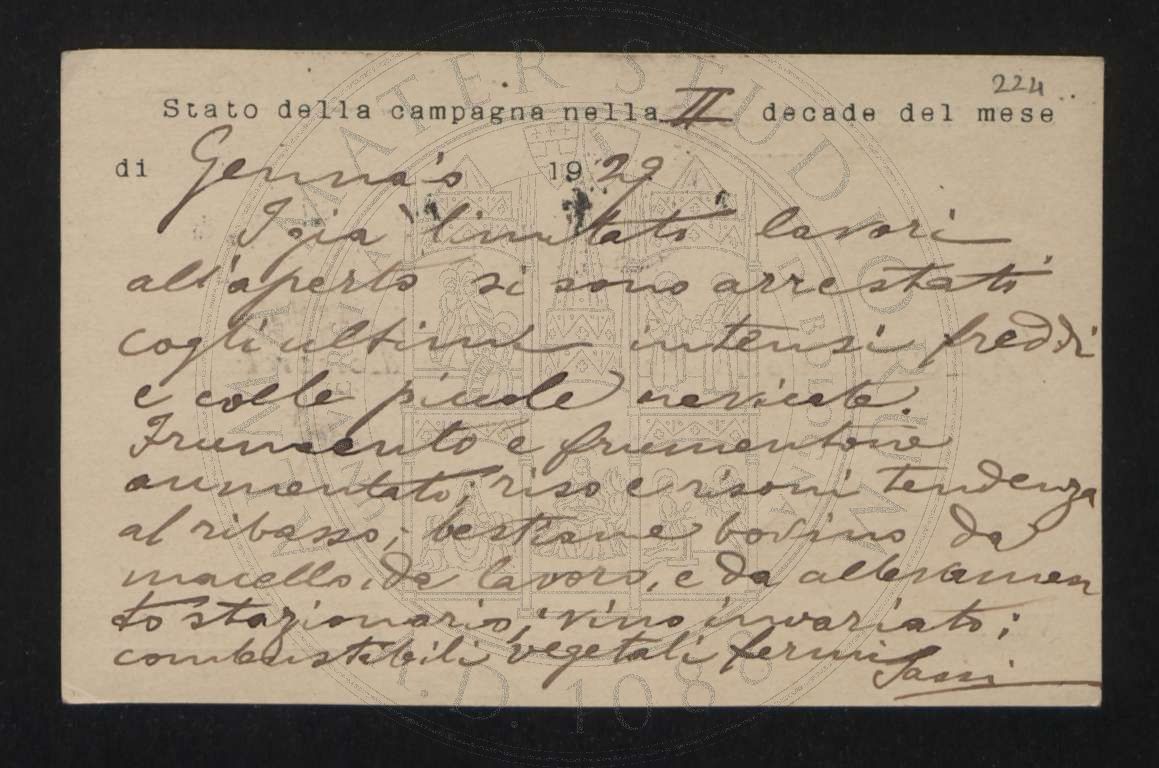 224
Stato della campagna nella II decade del mese
di Gennaio 1929
I già limitati lavori
all'aperto si sono arrestati
cogli ultimi intensi freddi
e colle piccole nevicate.
Frumento e frumentone
aumentato; riso e risoni tendenza
al ribasso; bestiame bovino da
macello, da lavoro, e da allevamen
to stazionario; vino invariato;
combustibili vegetali fermi
Sassi
ALMA MATER STUDIORUM
A.D. 1088